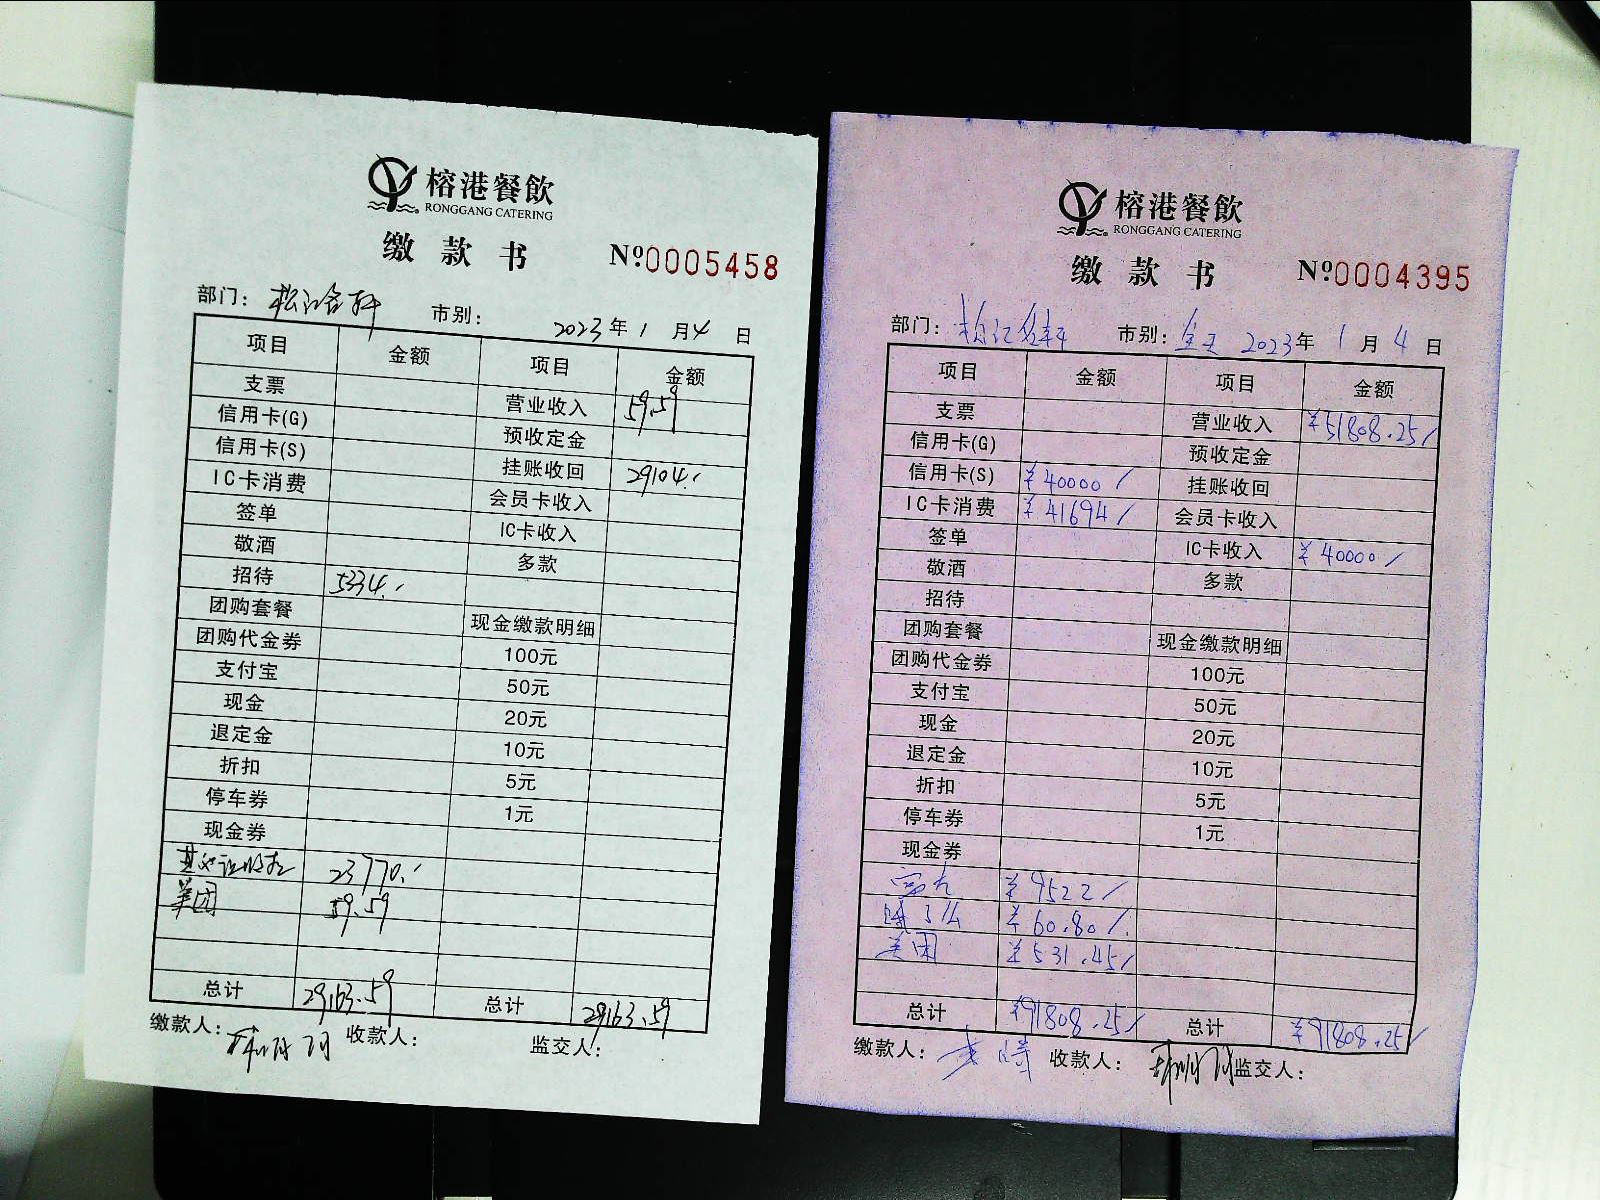 榕港餐飲
RONGGANG CATERING
缴款书 №0005458
部门: 松江名轩 市别: 2023年1月4日
项目 金额 项目 金额
支票 营业收入 59.59
信用卡(G) 预收定金
信用卡(S) 挂账收回 29104.-
IC卡消费 会员卡收入
签单 IC卡收入
敬酒 多款
招待 5334.-
团购套餐 现金缴款明细
团购代金券 100元
支付宝 50元
现金 20元
退定金 10元
折扣 5元
停车券 1元
现金券
23770.-
美团 59.59
总计 29163.59 总计 29163.59
缴款人: 收款人: 监交人:
榕港餐飲
RONGGANG CATERING
缴款书 №0004395
部门: 松江名轩 市别: 全天 2023年1月4日
项目 金额 项目 金额
支票 营业收入 ¥51808.25/
信用卡(G) 预收定金
信用卡(S) ¥40000/ 挂账收回
IC卡消费 ¥41694/ 会员卡收入
签单 IC卡收入 ¥40000/
敬酒 多款
招待
团购套餐 现金缴款明细
团购代金券 100元
支付宝 50元
现金 20元
退定金 10元
折扣 5元
停车券 1元
现金券
¥9522/
¥60.80/
美团 ¥531.45/
总计 ¥91808.25/ 总计 ¥91808.25/
缴款人: 收款人: 监交人: